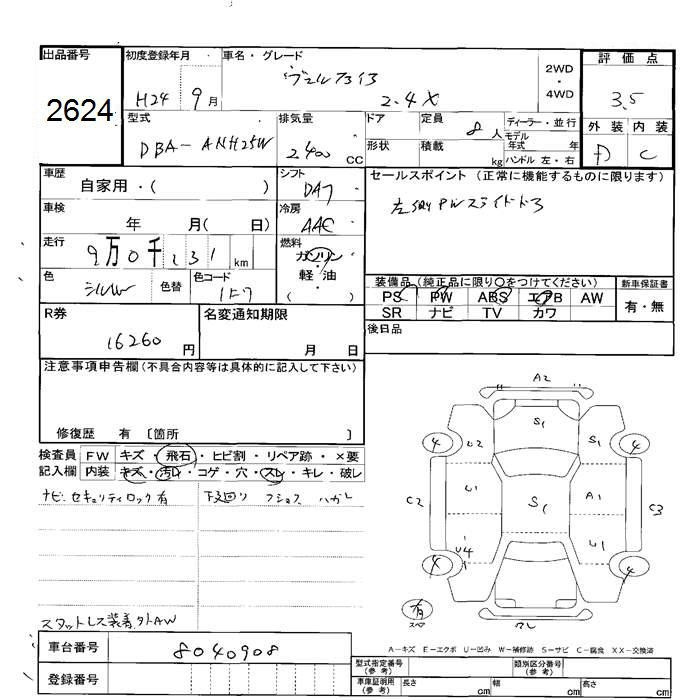 出品番号
2624
初度登録年月
H24 9月
車名・グレード
ヴェルファイア
2.4X
2WD
・
4WD
評価点
3.5
型式
DBA- ANH25W
排気量
2400 CC
ドア
形状
定員
8人
積載
kg
ディーラー・並行
モデル年式 年
ハンドル 左・右
外装 内装
D C
車歴
自家用・( )
シフト
DA7
セールスポイント(正常に機能するものに限ります)
左側PWスライドドア
車検
年 月( 日)
冷房
AAC
走行
9万0千231km
燃料
ガソリン
・
軽油
( )
色
シルバー
色替
色コード
1F7
装備品(純正品に限り○をつけてください)
PS PW ABS エアB AW
SR ナビ TV カワ
新車保証書
有・無
R券
16260円
名変通知期限
月 日
後日品
注意事項申告欄(不具合内容等は具体的に記入して下さい)
修復歴 有 〔箇所 〕
検査員記入欄
FW キズ・飛石・ヒビ割・リペア跡・×要
内装 キズ・汚れ・コゲ・穴・スレ・キレ・破レ
ナビ セキュリティロック有
下廻り
ハガレ
スタットレス装着 外AW
車台番号
8040908
登録番号
A2
S1
4 U2 S1 4
C2 S1 A1 C3
U4 U1
4 4
有
スペア
A-キズ E-エクボ U-凹み W-補修跡 S-サビ C-腐食 XX-交換済
型式指定番号
(参考)
類別区分番号
(参考)
車庫証明用
(参考)
長さ cm
幅 cm
高さ cm